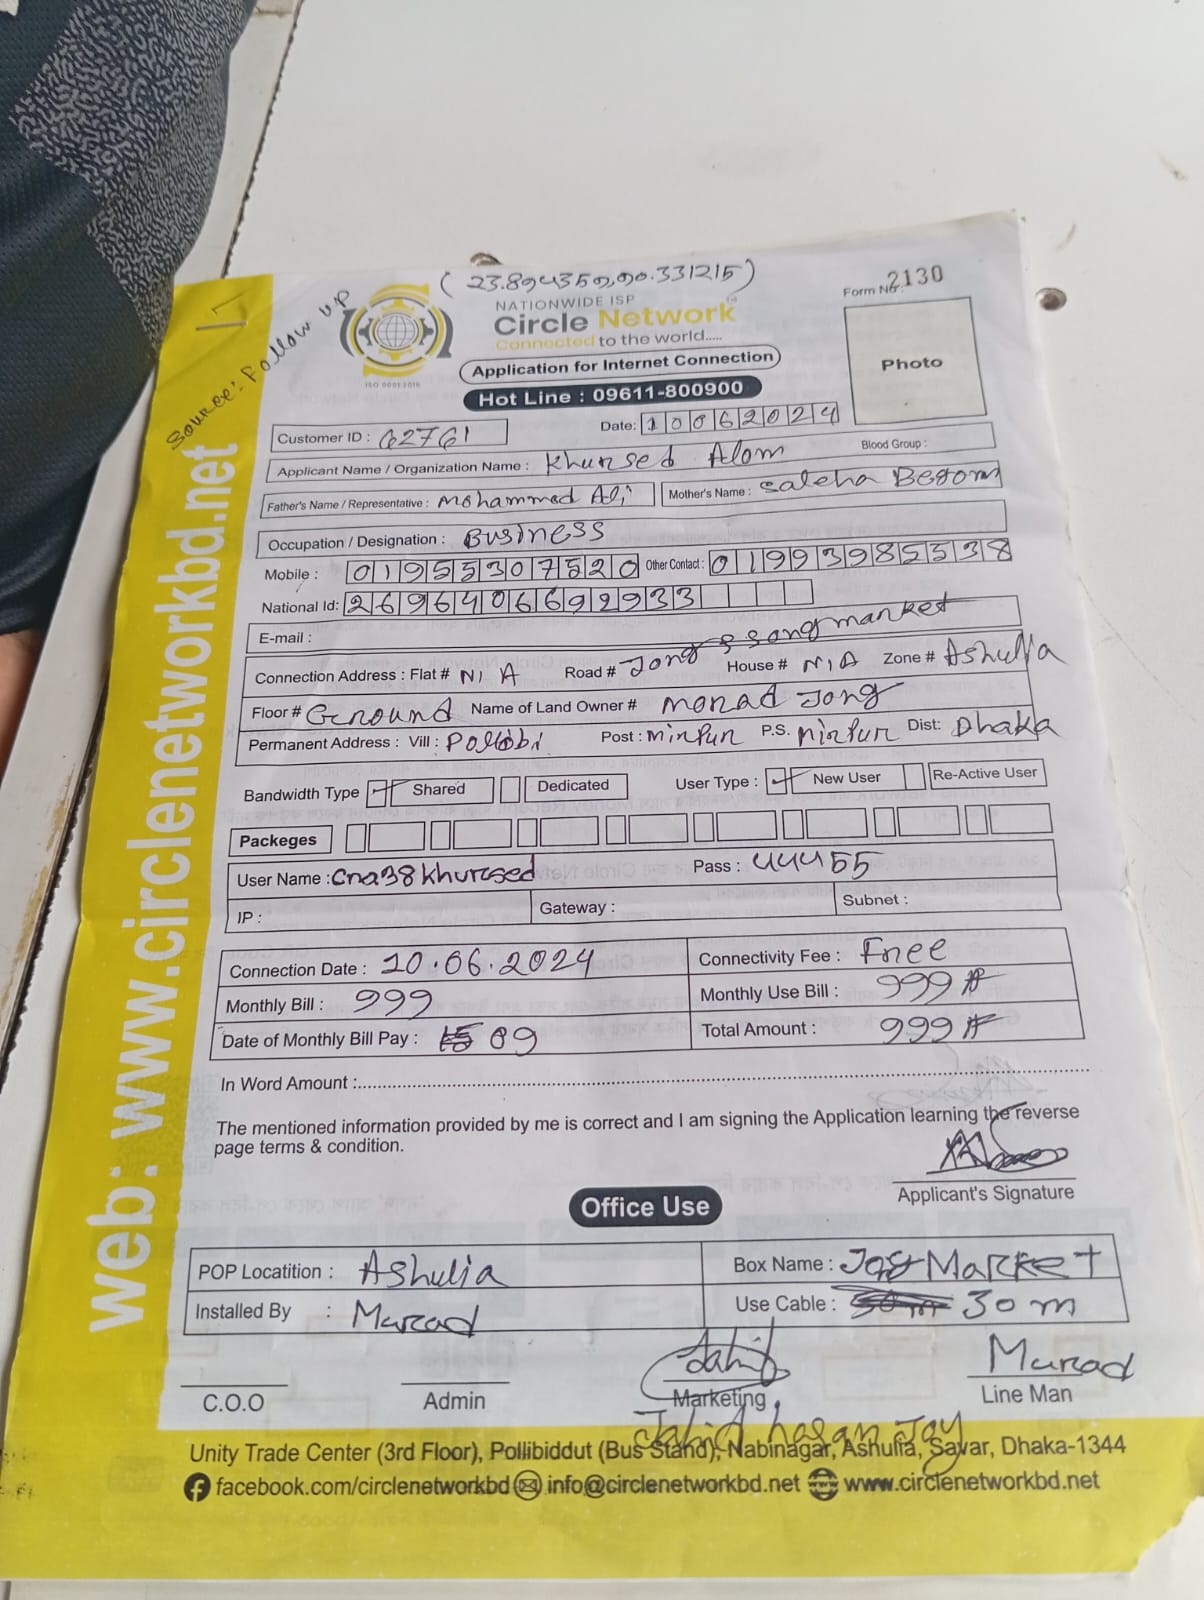 (23.894350,90.331215)
Form No: 2130
Source: Follow up
NATIONWIDE ISP
Circle Network
Connected to the world.....
ISO 9001:2015
Application for Internet Connection
Photo
Hot Line : 09611-800900
Customer ID : 62761
Date: 10062024
Applicant Name / Organization Name : Khursed Alom
Blood Group :
Father's Name / Representative : Mohammad Ali
Mother's Name : Saleha Begom
Occupation / Designation : Business
Mobile : 01955307520 Other Contact : 01993985538
National Id: 2696406692933
E-mail :
Connection Address : Flat # N/A Road # Jong song market House # N/A Zone # Ashulia
Floor # Ground Name of Land Owner # Morad Jong
Permanent Address : Vill : Pollobi Post : Mirpur P.S. Mirpur Dist: Dhaka
Bandwidth Type Shared Dedicated User Type : New User Re-Active User
Packeges
User Name : cna38khursed Pass : 44455
IP : Gateway : Subnet :
Connection Date : 10.06.2024 Connectivity Fee : Free
Monthly Bill : 999 Monthly Use Bill : 999
Date of Monthly Bill Pay : 09 Total Amount : 999
In Word Amount :
The mentioned information provided by me is correct and I am signing the Application learning the reverse
page terms & condition.
Applicant's Signature
Office Use
POP Locatition : Ashulia Box Name : Market
Installed By : Murad Use Cable : 30m
Jahid Murad
C.O.O Admin Marketing Line Man
Jahid hasan Joy
Unity Trade Center (3rd Floor), Pollibiddut (Bus Stand), Nabinagar, Ashulia, Savar, Dhaka-1344
facebook.com/circlenetworkbd info@circlenetworkbd.net www.circlenetworkbd.net
web: www.circlenetworkbd.net